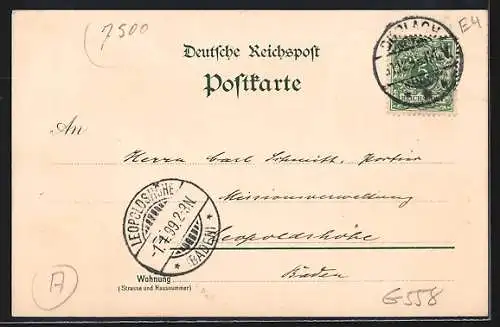 7500
E4
Deutsche Reichspost
Postkarte
An
Herrn Carl Schmidt, Portier
Missionsverwaltung
Leopoldshöhe
Baden
LEOPOLDSHÖHE
-1.1.99.2-3N.
* (BADEN) *
Wohnung
(Strasse und Hausnummer)
A
G558